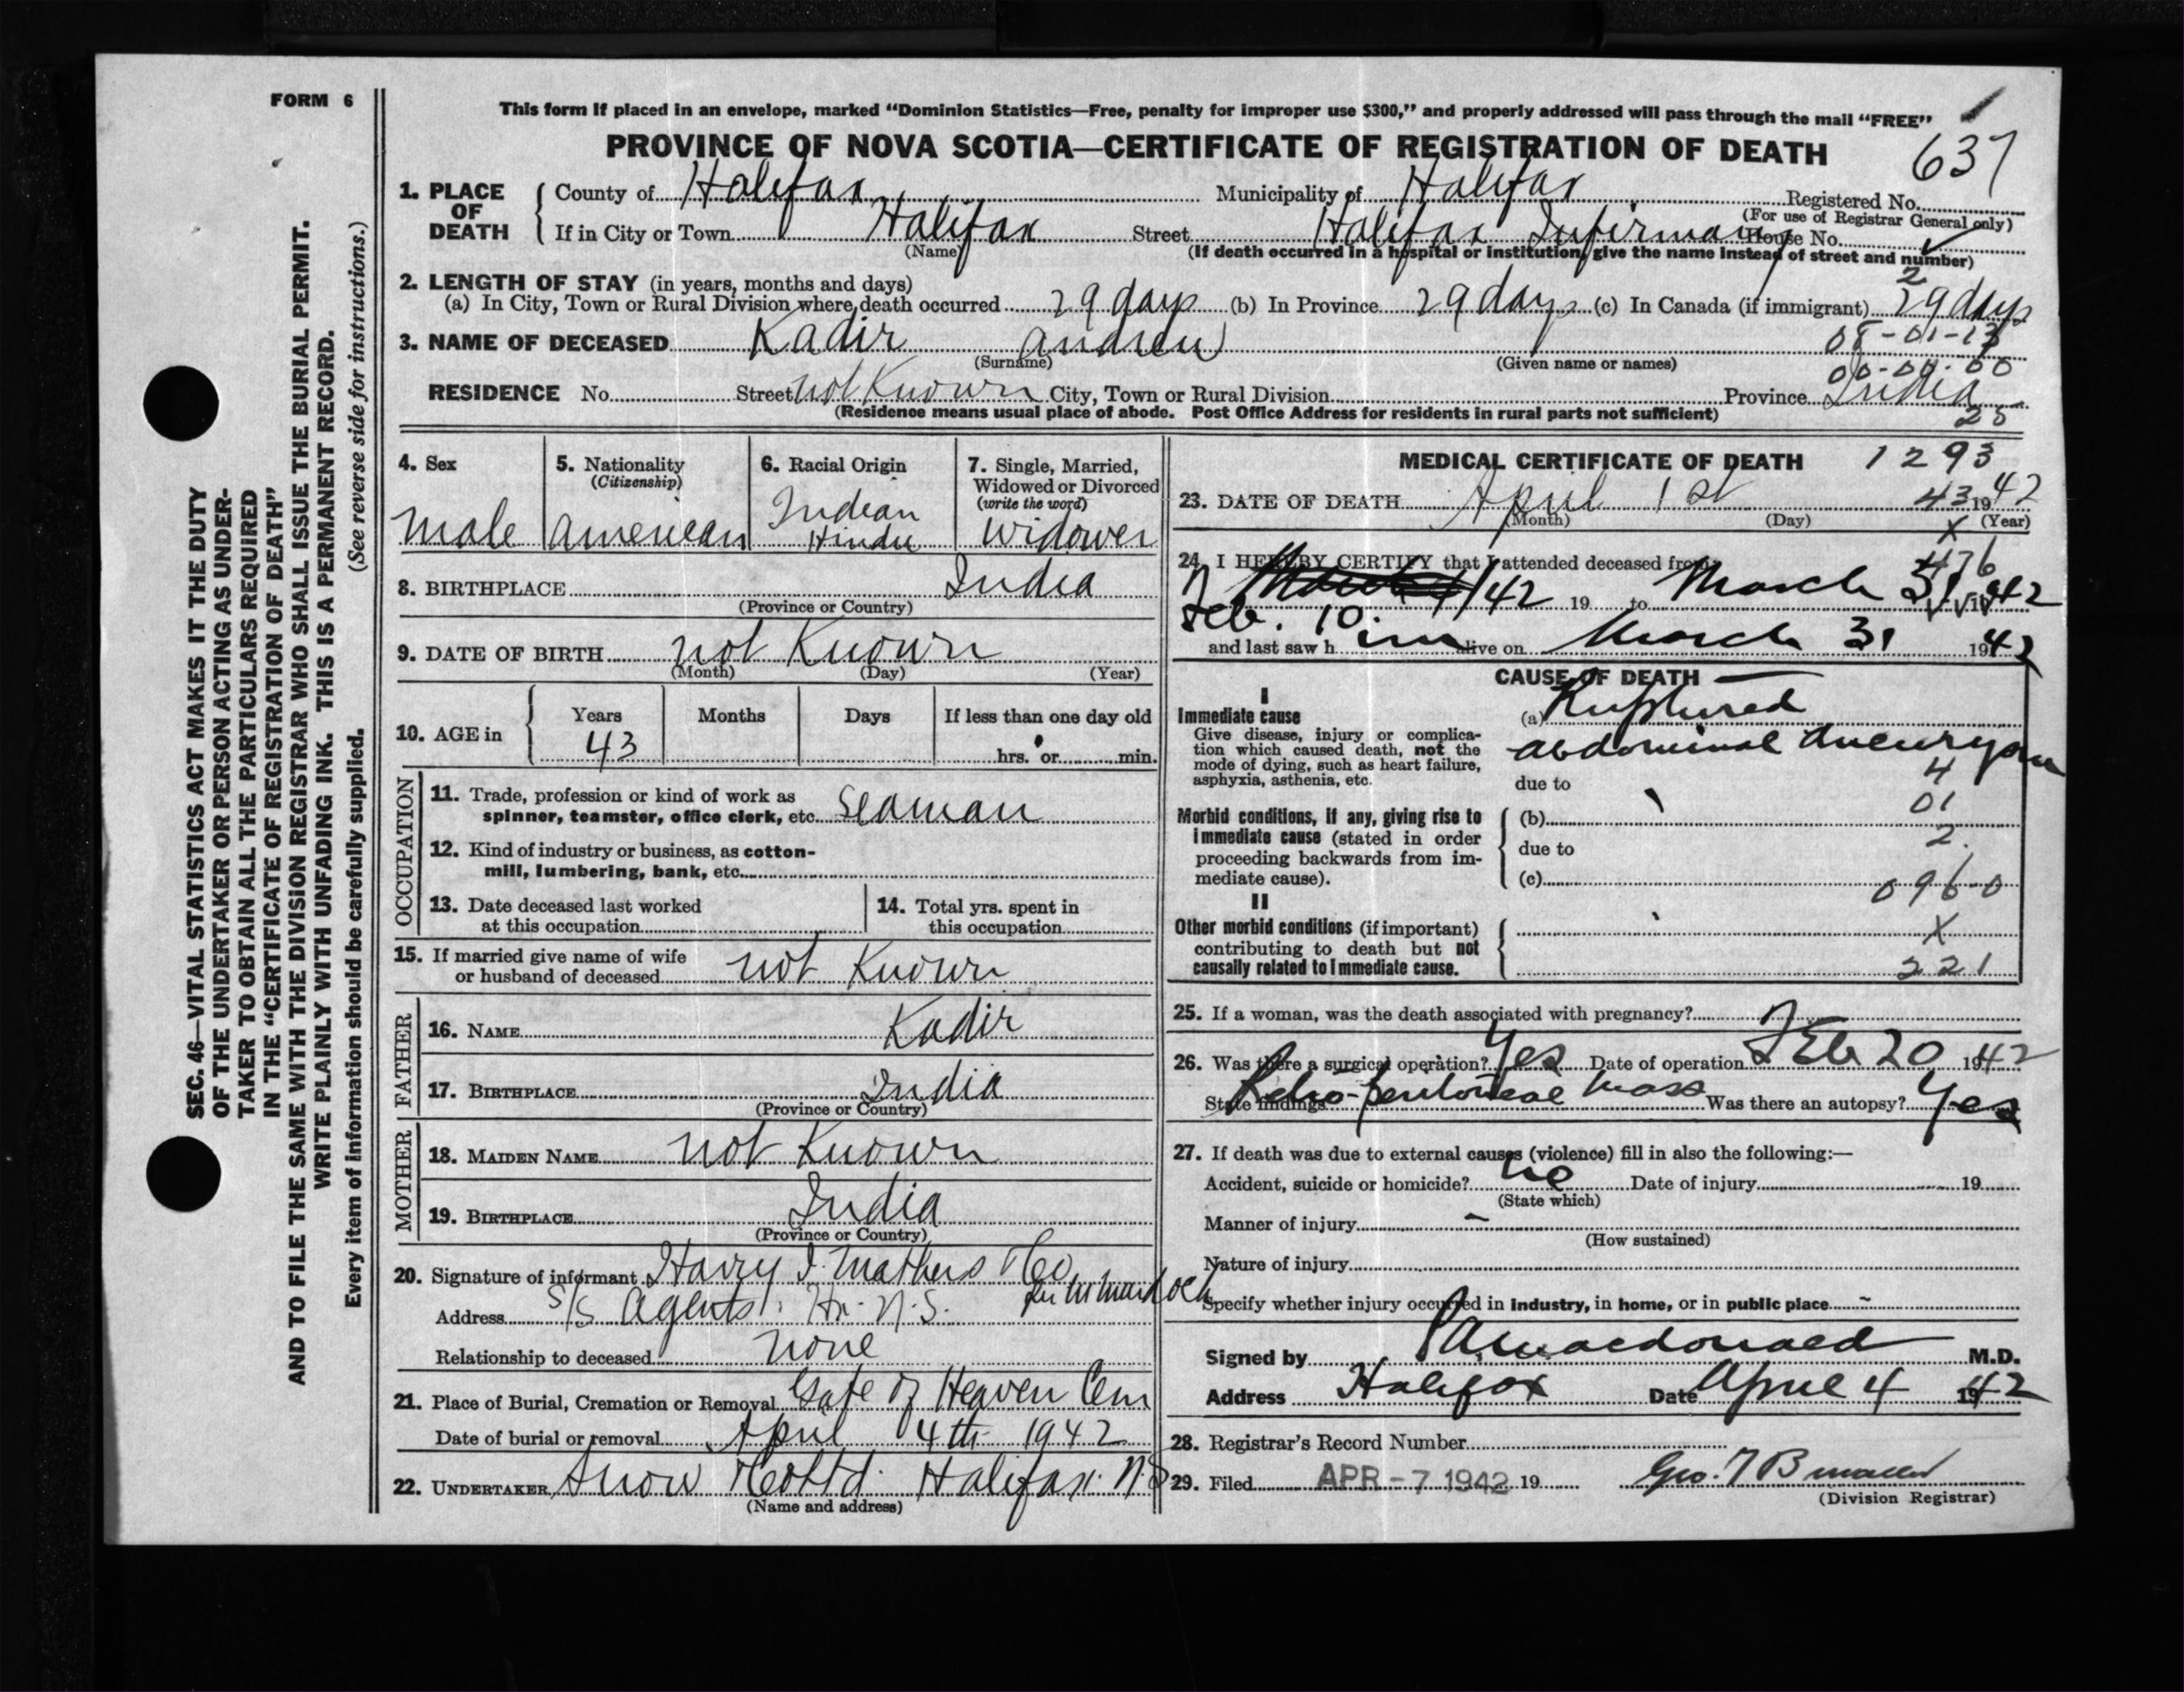 FORM 6
This form if placed in an envelope, marked “Dominion Statistics—Free, penalty for improper use $300,” and properly addressed will pass through the mail “FREE”
PROVINCE OF NOVA SCOTIA—CERTIFICATE OF REGISTRATION OF DEATH
637
1. PLACE OF DEATH
County of Halifax Municipality of Halifax Registered No.
(For use of Registrar General only)
If in City or Town Halifax Street Halifax Infirmary House No.
(Name) (If death occurred in a hospital or institution, give the name instead of street and number)
2. LENGTH OF STAY (in years, months and days)
2
(a) In City, Town or Rural Division where death occurred 29 days (b) In Province 29 days (c) In Canada (if immigrant) 29 days
3. NAME OF DECEASED Kadir Andrew 08-01-13
(Surname) (Given name or names)
00-00-00
RESIDENCE No. Street not Known City, Town or Rural Division Province India
(Residence means usual place of abode. Post Office Address for residents in rural parts not sufficient)
25
4. Sex
male
5. Nationality
(Citizenship)
American
6. Racial Origin
Indian
Hindu
7. Single, Married,
Widowed or Divorced
(write the word)
Widower
8. BIRTHPLACE India
(Province or Country)
9. DATE OF BIRTH not Known
(Month) (Day) (Year)
10. AGE in
Years Months Days If less than one day old
43 hrs. or min.
OCCUPATION
11. Trade, profession or kind of work as
spinner, teamster, office clerk, etc. Seaman
12. Kind of industry or business, as cotton-
mill, lumbering, bank, etc.
13. Date deceased last worked
at this occupation
14. Total yrs. spent in
this occupation
15. If married give name of wife
or husband of deceased not Known
FATHER
16. NAME Kadir
17. BIRTHPLACE India
(Province or Country)
MOTHER
18. MAIDEN NAME not Known
19. BIRTHPLACE India
(Province or Country)
20. Signature of informant Harry I. Mathers & Co
per W Murdoch
Address S/S Agents. Hx. N.S.
Relationship to deceased none
21. Place of Burial, Cremation or Removal Gate of Heaven Cem
Date of burial or removal April 4th 1942
22. UNDERTAKER Snow & Co Ltd. Halifax. N.S
(Name and address)
MEDICAL CERTIFICATE OF DEATH 1293
23. DATE OF DEATH April 1st 43 1942
(Month) (Day) (Year)
X
24. I HEREBY CERTIFY that I attended deceased from 476
/42 19 to March 31 1942
Feb. 10.
and last saw h im alive on March 31 1942
CAUSE OF DEATH
I
Immediate cause
Give disease, injury or complica-
tion which caused death, not the
mode of dying, such as heart failure,
asphyxia, asthenia, etc.
(a) Ruptured
abdominal aneurysm
4
due to
Morbid conditions, if any, giving rise to
immediate cause (stated in order
proceeding backwards from im-
mediate cause).
(b) 01
due to 2.
(c) 096-0
II
Other morbid conditions (if important)
contributing to death but not
causally related to immediate cause.
X
221
25. If a woman, was the death associated with pregnancy?
26. Was there a surgical operation? Yes Date of operation Feb 20 1942
State findings Retro-peritoneal mass Was there an autopsy? Yes
27. If death was due to external causes (violence) fill in also the following:—
Accident, suicide or homicide? no Date of injury 19
(State which)
Manner of injury —
(How sustained)
Nature of injury
Specify whether injury occurred in industry, in home, or in public place —
Signed by Macdonald M.D.
Address Halifax Date April 4 1942
28. Registrar's Record Number
29. Filed APR - 7 1942 19 Geo.
(Division Registrar)
SEC. 46—VITAL STATISTICS ACT MAKES IT THE DUTY
OF THE UNDERTAKER OR PERSON ACTING AS UNDER-
TAKER TO OBTAIN ALL THE PARTICULARS REQUIRED
IN THE “CERTIFICATE OF REGISTRATION OF DEATH”
AND TO FILE THE SAME WITH THE DIVISION REGISTRAR WHO SHALL ISSUE THE BURIAL PERMIT.
WRITE PLAINLY WITH UNFADING INK. THIS IS A PERMANENT RECORD.
Every item of information should be carefully supplied. (See reverse side for instructions.)